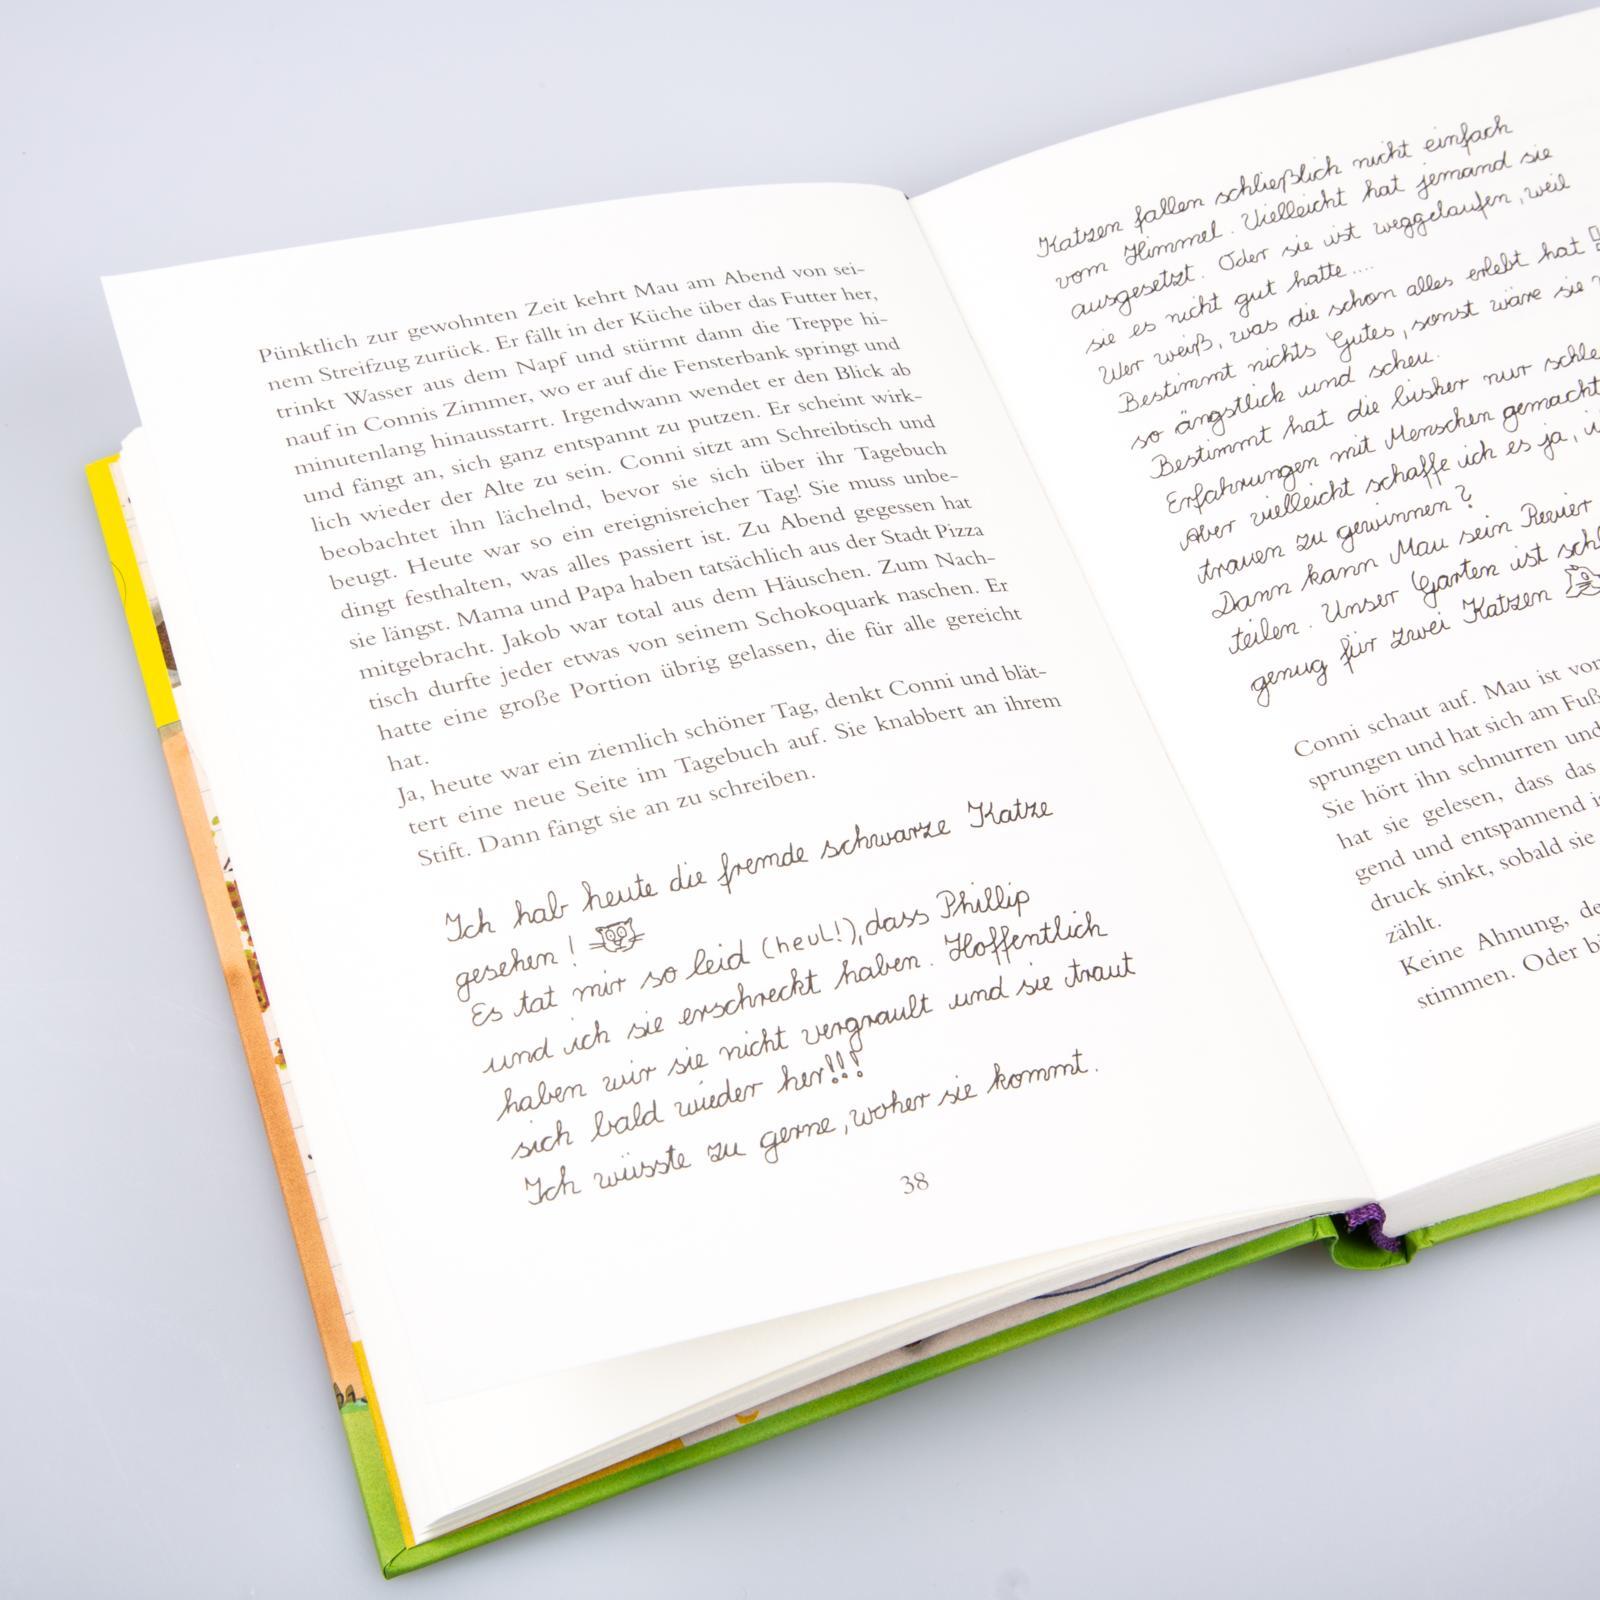 Pünktlich zur gewohnten Zeit kehrt Mau am Abend von sei-
nem Streifzug zurück. Er fällt in der Küche über das Futter her,
trinkt Wasser aus dem Napf und stürmt dann die Treppe hi-
nauf in Connis Zimmer, wo er auf die Fensterbank springt und
minutenlang hinausstarrt. Irgendwann wendet er den Blick ab
und fängt an, sich ganz entspannt zu putzen. Er scheint wirk-
lich wieder der Alte zu sein. Conni sitzt am Schreibtisch und
beobachtet ihn lächelnd, bevor sie sich über ihr Tagebuch
beugt. Heute war so ein ereignisreicher Tag! Sie muss unbe-
dingt festhalten, was alles passiert ist. Zu Abend gegessen hat
sie längst. Mama und Papa haben tatsächlich aus der Stadt Pizza
mitgebracht. Jakob war total aus dem Häuschen. Zum Nach-
tisch durfte jeder etwas von seinem Schokoquark naschen. Er
hatte eine große Portion übrig gelassen, die für alle gereicht
hat.
Ja, heute war ein ziemlich schöner Tag, denkt Conni und blät-
tert eine neue Seite im Tagebuch auf. Sie knabbert an ihrem
Stift. Dann fängt sie an zu schreiben.
Ich hab heute die fremde schwarze Katze
gesehen!
Es tat mir so leid (heul!), dass Phillip
und ich sie erschreckt haben. Hoffentlich
haben wir sie nicht vergrault und sie traut
sich bald wieder her!!!
Ich wüsste zu gerne, woher sie kommt.
38
Katzen fallen schließlich nicht einfach
vom Himmel. Vielleicht hat jemand sie
ausgesetzt. Oder sie ist weggelaufen, weil
sie es nicht gut hatte....
Wer weiß, was die schon alles erlebt hat
Bestimmt nichts Gutes, sonst wäre sie
so ängstlich und scheu.
Bestimmt hat die bisher nur schle
Erfahrungen mit Menschen gemacht
Aber vielleicht schaffe ich es ja,
trauen zu gewinnen?
Dann kann Mau sein Revier
teilen. Unser Garten ist schl
genug für zwei Katzen
Conni schaut auf. Mau ist vo
sprungen und hat sich am Fuß
Sie hört ihn schnurren und
hat sie gelesen, dass das
gend und entspannend i
druck sinkt, sobald sie
zählt.
Keine Ahnung, de
stimmen. Oder bi